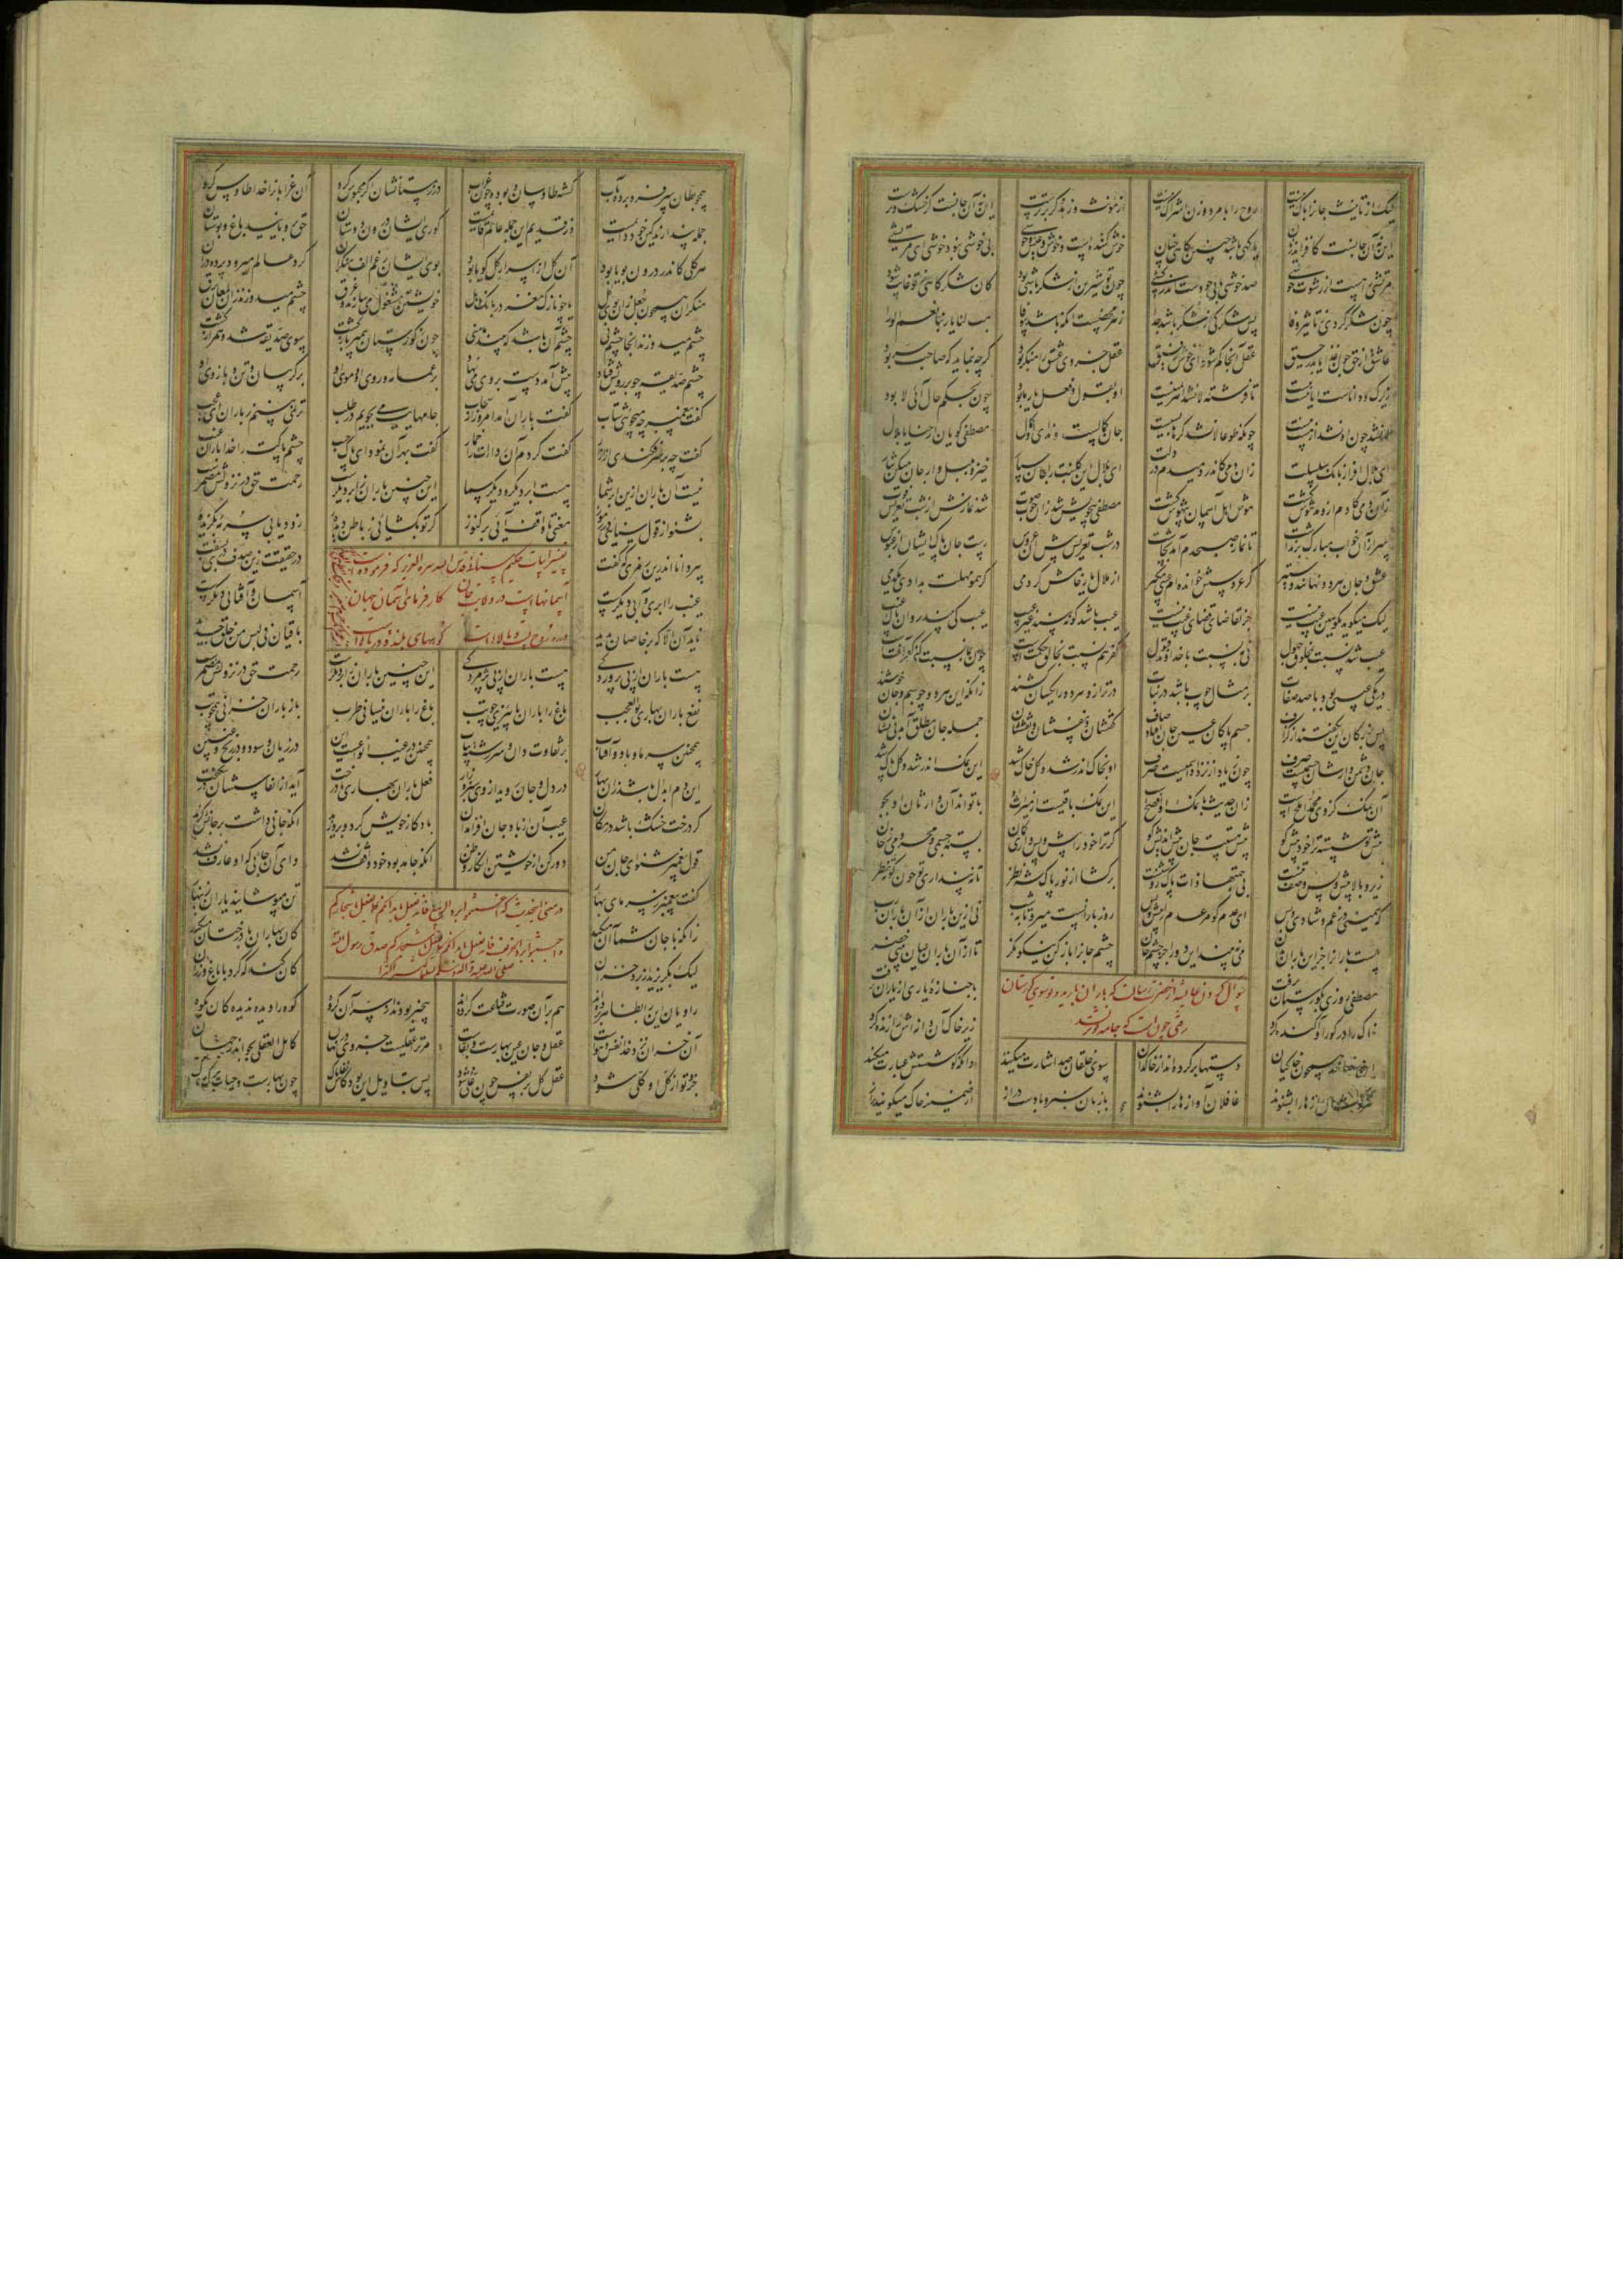 لیک از تأنیث جانرا باک نیست روح را با مرد و زن اشراک نیست از مؤنث وز مذکر برترست این نه آن جانست کز خشک و ترست
این نه آن جانست کافزاید ز نان یا گهی باشد چنین گاهی چنان خوش کننده است و خوش و عین خوشی بی خوشی نبود خوشی ای مرتشی
چون تو شیرین از شکر باشی بود کان شکر گاهی ز تو غایب شود
چون شکر گردی ز تأثیر وفا پس شکر کی از شکر باشد جدا زهر محضست آنکه باشد بی وفا هب لنا یا ربنا نعم الورا
عاشق از حق چون غذا یابد رحیق عقل آنجا گم شود ای خوش رفیق عقل جزوی عشق را منکر بود گرچه بنماید که صاحب سر بود
زیرک و داناست اما نیست نیست تا فرشته لا نشد اهرمنیست او بقول و فعل یار ما بود چون بحکم حال آئی لا بود
نشد چون او نشد از هست نیست چونکه طوعا لا نشد کرها بسیست جان کمالست و ندای او کمال مصطفی گویان ارحنا یا بلال
ای بلال افراز بانگ سلسلت زان دمی کاندر دمیدم در دلت ای بلال این گلبنت را کان سپار خیز و بلبل وار جان میکن نثار
زان دمی کادم ازو مدهوش گشت هوش اهل آسمان بیهوش گشت مصطفی بیخویش شد زان خوب صوت شد نمازش از شب تعریس فوت
سر از آن خواب مبارک بر نداشت تا نماز صبحدم آمد بچاشت در شب تعریس پیش آن عروس یافت جان پاک ایشان
عشق و جان هر دو نهانند و ستیر گر عروسش خوانده ام عیبی مگیر از ملال یار خامش کردمی گر همو مهلت بدادی یکدمی
لیک میگوید بگو هین عیب نیست جز تقاضای قضای غیب نیست عیب باشد کو نبیند جز که عیب عیب کی بیند روان پاک غیب
عیب شد نسبت بمخلوق جهول نی به نسبت با خداوند قبول کفر هم نسبت بخالق حکمتست چون بما نسبت کنی کفر آفتست
ور یکی عیبی بود با صد صفات بر مثال چوب باشد در نبات در ترازو هر دو را یکسان کشند زانکه این هر دو چو جسم و جان خوشند
پس بزرگان این نگفتند از گزاف جسم پاکان عین جان افتاد صاف گفتشان و نفسشان و نقششان جمله جان مطلق آمد بی نشان
جان دشمن دارشان جسمیست صرف چون زیاد از نرد او اسمیست صرف او بخاک اندر شد و کل خاک شد این نمک اندر شد و کل پاک شد
آن نمک کز وی محمد املحست زان حدیث با نمک او افصحست این نمک باقیست از میراث او با تواند آن وارثان او بجو
پیش تو شسته ترا خود پیش کو پیش هستت جان پیش اندیش کو گر تو خود را پیش و پس داری گمان بسته جسمی و محرومی ز جان
زیر و بالا پیش و پس وصف تنست بی جهتها ذات پاک روشنست برگشا از نور پاک شه نظر تا نپنداری تو چون کوته نظر
که همینی در غم و شادی و بس ای عدم کو مر عدم را پیش و پس روز بارانست میرو تا بشب نی ازین باران از آن باران رب
هست بارانها جز این باران بدان می نبیند این ورا جز چشم جان چشم جانرا باز کن نیکو نگر تا از آن باران عیان بینی خضر
مصطفی روزی بگورستان برفت با جنازه یاری از یاران برفت
سوال کردن عایشه از حضرت رسالت که باران بارید و تو سوی گورستان
رفتی چون است که جامه تو تر نشد
خاک را در گور او آکنده کرد زیر خاک آن دانه اش را زنده کرد
همچون خاکیان دستها بر کرده اند از خاکدان سوی خلقان صد اشارت میکنند وانکه گوشستش عبارت میکنند
غافلان آواز ها را بشنوند با زبان سبز و با دست دراز از ضمیر خاک میگویند راز
همچو بطان سر فرو برده بآب گشته طاوسان و بوده چون غراب در زمستانشان اگر محبوس کرد آن غرابانرا خدا طاوس کرد
کوری ایشان درون دوستان حق برویانید باغ و بوستان
هر گلی کاندر درون بویا بود آن گل از اسرار کل گویا بود بوی ایشان رغم انف منکران گرد عالم میرود پرده دران
منکران همچون جعل زان بوی گل یا چو نازک مغز در بانگ دهل خویشتن مشغول میسازند و غرق چشم میدوزند از لمعان برق
چشم میدوزند و آنجا چشم نی چشم آن باشد که بیند مأمنی چون ز گورستان پیمبر بازگشت سوی صدیقه شد و همراز گشت
چشم صدیقه چو بر رویش فتاد پیش آمد دست بر وی می نهاد بر عمامه و روی او و موی او بر گریبان و تن و بازوی او
گفت پیغمبر چه میجوئی شتاب گفت باران آمد امروز از سحاب جامهایت می بجویم در طلب تر نمی بینم ز باران ای عجب
گفت چه بر سر فکندی از ازار گفت کردم آن ردایت را خمار گفت بهر آن نمود ای پاک جیب چشم پاکت را خدا باران غیب
نیست آن باران ازین ابر شما هست ابر دیگر و دیگر سما این چنین باران ز ابر دیگرست رحمت حق در نزولش مضمرست
بشنو از قول سنائی در رموز معنی تا واقف آئی بر کنوز گر تو بگشائی ز باطن دیده زود یابی سرمه بگزیده
پیر دانا اندرین رمزی که گفت در حقیقت زین صدف دری بسفت
تفسیر ابیات حکیم سنائی قدس الله سره العزیز که فرموده
آسمانهاست در ولایت جان کارفرمای آسمان جهان
در ره روح پست و بالاهاست کوههای بلند و دریاهاست
غیب را ابری و آبی دیگرست آسمان و آفتابی دیگرست
ناید آن الا که بر خاصان پدید باقیان فی لبس من خلق جدید
هست باران از پی پروردگی هست باران از پی پژمردگی این چنین باران ز ابر دیگرست رحمت حق در نزولش مضمرست
نفع باران بهاری بوالعجب باغ را باران پائیزی چو تب باغ را باران نیسانی طرب باز باران خزانی همچو تب
همچنین سرما و باد و آفتاب بر تفاوت دان و سررشته بیاب همچنین در غیب انواعست این در زیان و سود و در رنج و غبین
این دم ابدال باشد زان بهار در دل و جان روید از وی سبزه زار فعل باران بهاری با درخت آید از انفاسشان در نیکبخت
گر درخت خشک باشد در مکان عیب آن از باد جان افزا مدان باد کار خویش کرد و بروزید آنکه جانی داشت بر جانش گزید
قول پیغمبر شنو ای جان من دور کن از خویشتن انکار و ظن آنکه جامد بود خود واقف نشد وای آن جانی که او عارف نشد
گفت پیغمبر ز سرمای بهار تن مپوشانید یاران زینهار
در معنی این حدیث که اغتنموا برد الربیع فانه یعمل بابدانکم کما یعمل باشجارکم
واجتنبوا برد الخریف فانه یعمل بابدانکم کما یعمل باشجارکم صدق رسول الله
صلی الله علیه و آله وسلم
زانکه با جان شما آن میکند کان بهاران با درختان میکند
لیک بگریزید از برد خزان کان کند کو کرد با باغ و رزان
راویان این را بظاهر برده اند هم بر آن صورت قناعت کرده اند بیخبر بودند از سر آن گروه کوه را دیده ندیده کان بکوه
آن خزان نزد خدا نفس و هواست عقل و جان عین بهارست و بقاست مر ترا عقلیست جزوی در نهان کامل العقلی بجو اندر جهان
جزو تو از کل او کلی شود عقل کل بر نفس چون غلی شود پس بتأویل این بود کانفاس پاک چون بهارست و حیات برگ و تاک